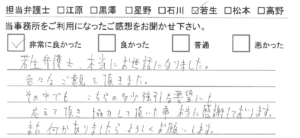 担当弁護士 □江原 □黒澤 □星野 □石川 ☑若生 □松本 □高野
当事務所をご利用になったご感想をお聞かせ下さい。
☑ 非常に良かった □ 良かった □ 普通 □ 悪かった
若生弁護士、本当にお世話になりました。
色々なご意見を頂きました。
その中でも こちらの多少強引な要望にも
応えて頂き 協力して頂いた事 本当に感謝しております。
また何かありましたら よろしくお願いします。